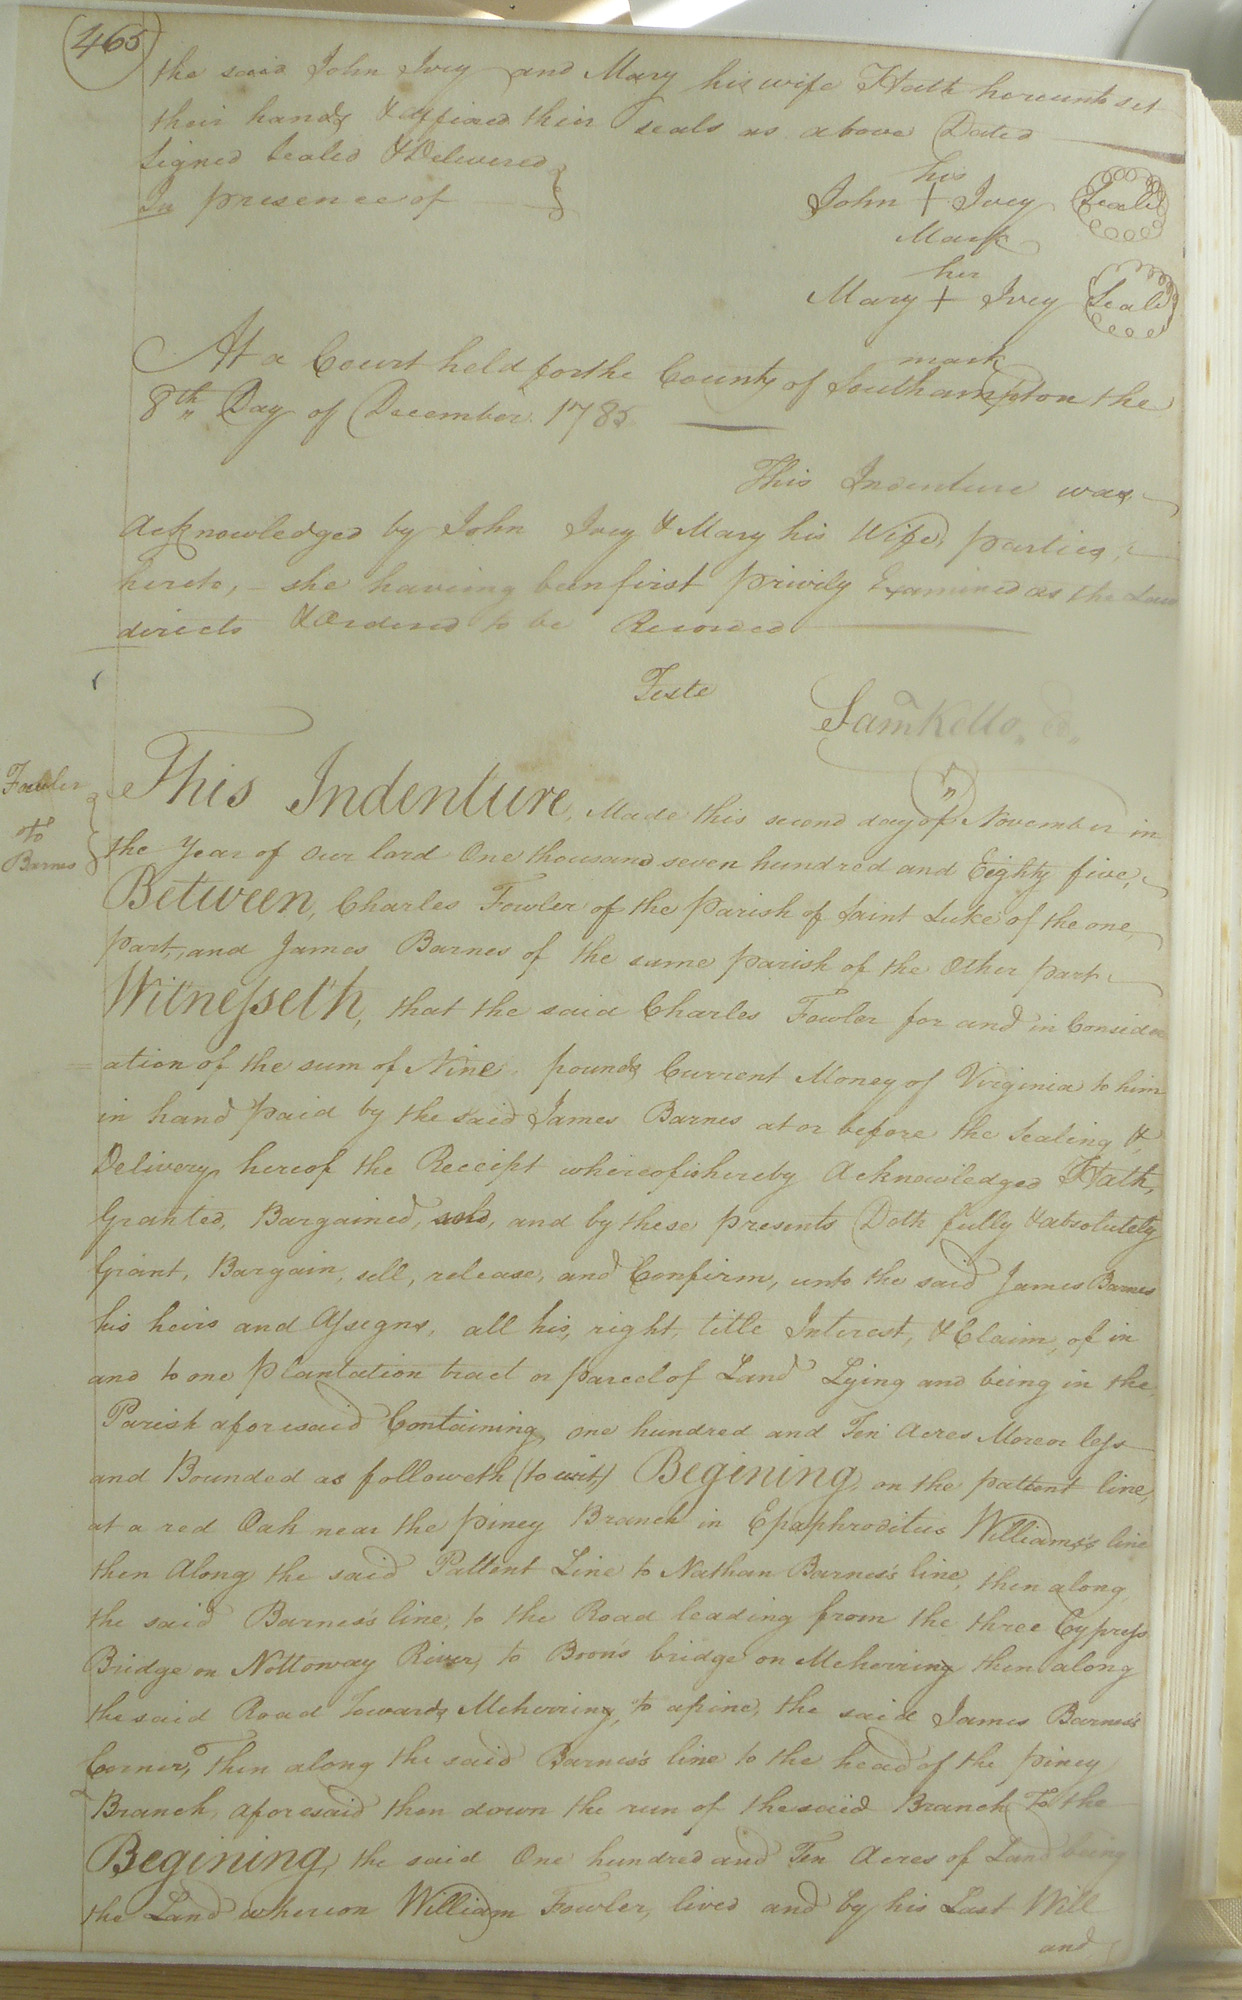 465
the said John Ivey and Mary his wife Hath hereunto set
their hands & affixed their seals as above Dated
Signed Sealed & Delivered
In presence of
his
John + Ivey Seale
Mark
her
Mary + Ivey Seale
mark
At a Court held for the County of Southampton the
8th Day of December 1785
This Indenture was
Acknowledged by John Ivey & Mary his Wife, parties,
hereto, - she haveing been first privily Examined as the Law
directs & Ordered to be Recorded
Teste
Saml Kello, Cc,
Fowler
To
Barnes
This Indenture, Made this second day of November in
the Year of our lord One thousand seven hundred and Eighty five,
Between, Charles Fowler of the Parish of Saint Luke of the one
part, and James Barnes of the same parish of the Other part
Witnesseth, that the said Charles Fowler for and in Consider
ation of the sum of Nine pounds Current Money of Virginia to him
in hand paid by the said James Barnes at or before the Sealing &
Delivery hereof the Receipt whereof is hereby Acknowledged Hath,
Granted, Bargained, sold, and by these presents Doth fully & absolutely
Grant, Bargain, sell, release, and Confirm, unto the said James Barnes
his heirs and Assigns, all his, right, title Interest, & Claim, of in
and to one Plantation tract or parcel of Land Lying and being in the
Parish aforesaid Containing one hundred and Ten Acres More or less
and Bounded as followeth (to wit) Begining on the pattent line,
at a red Oak near the piney Branch in Epaphroditus Williams's line
then Along the said Pattent Line to Nathan Barnes's line, then along
the said Barness line, to the Road leading from the three Cypress
Bridge on Nottoway River, to Boon's bridge on Meherring then along
the said Road Towards Meherring, to a pine, the said James Barnes's
Corner, Then along the said Barnes's line to the head of the piney
Branch, aforesaid then down the run of the said Branch To the
Begining, the said One hundred and Ten Acres of Land being
the Land whereon William Fowler, lived and by his Last Will
and